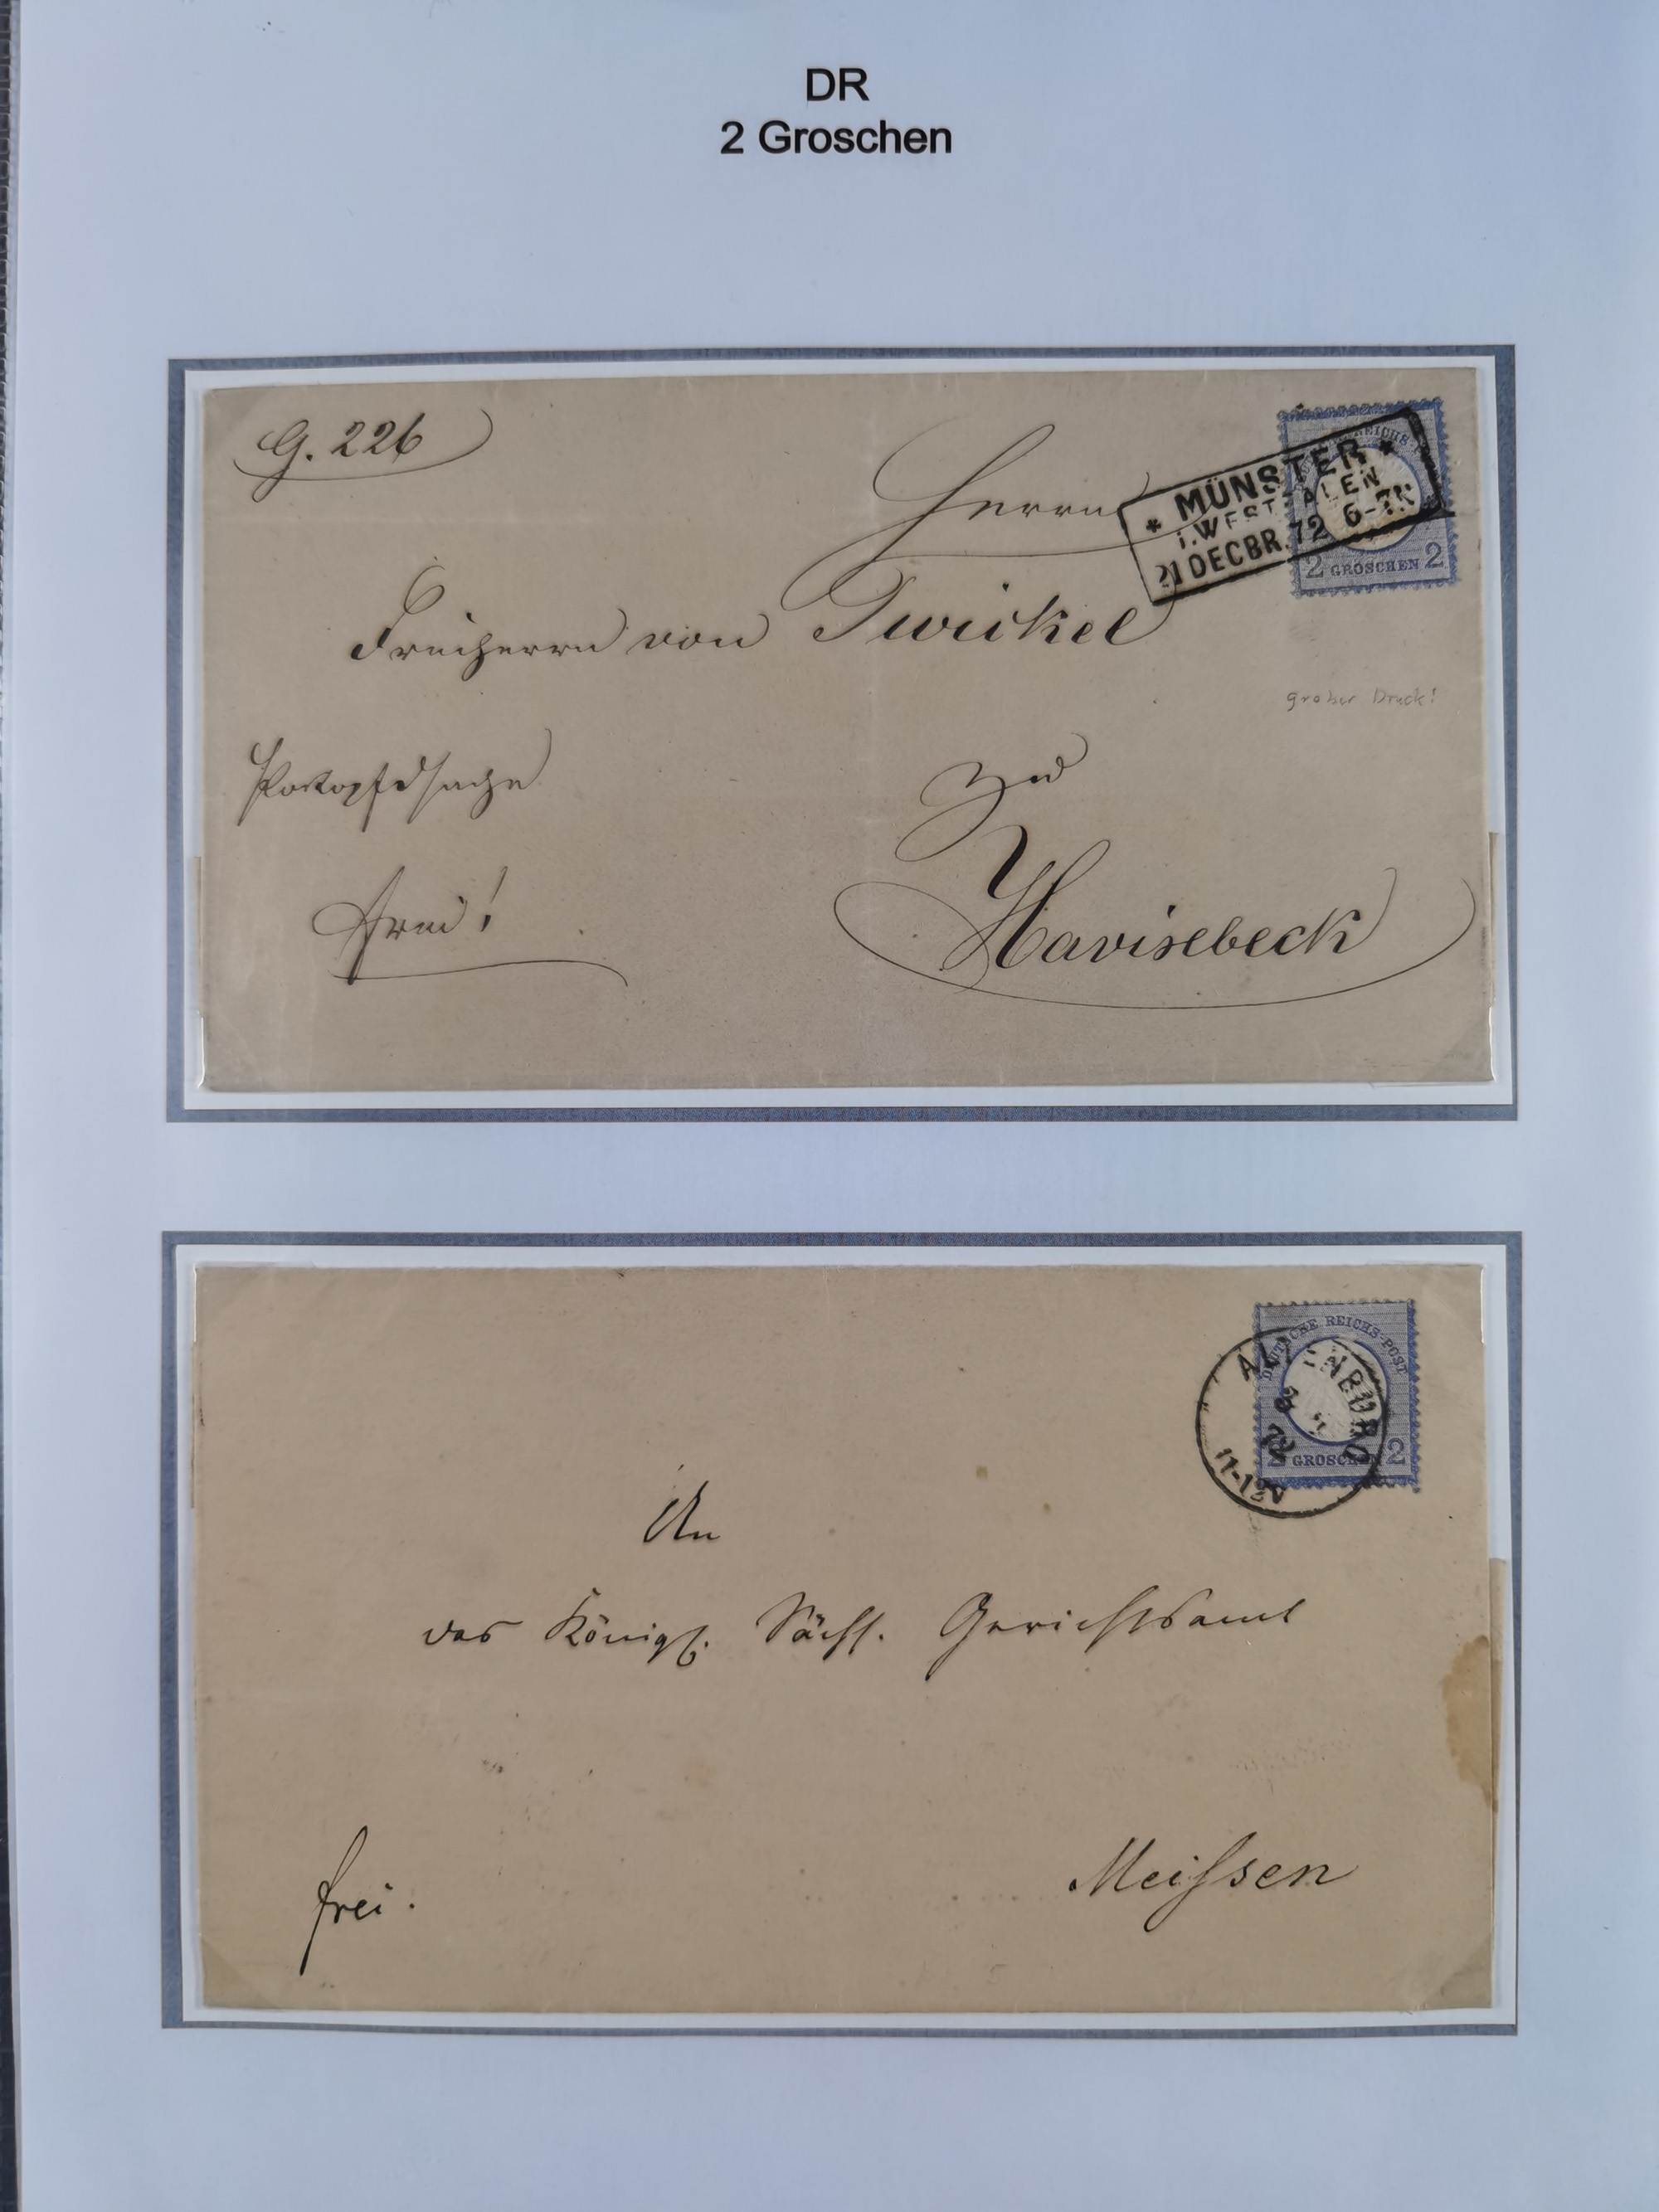 DR
2 Groschen
G. 226
Herrn
* MÜNSTER *
i. WESTFALEN
21 DECBR. 72 6-7N
REICHS
2 GROSCHEN 2
Freiherrn von Twickel
grober Druck!
zu
Havixbeck
frei!
DEUTSCHE REICHS-POST
AL ENBURG
72
11-12V
2 GROSCHEN 2
An
das Königl. Sächs. Gerichtsamt
Meissen
frei.